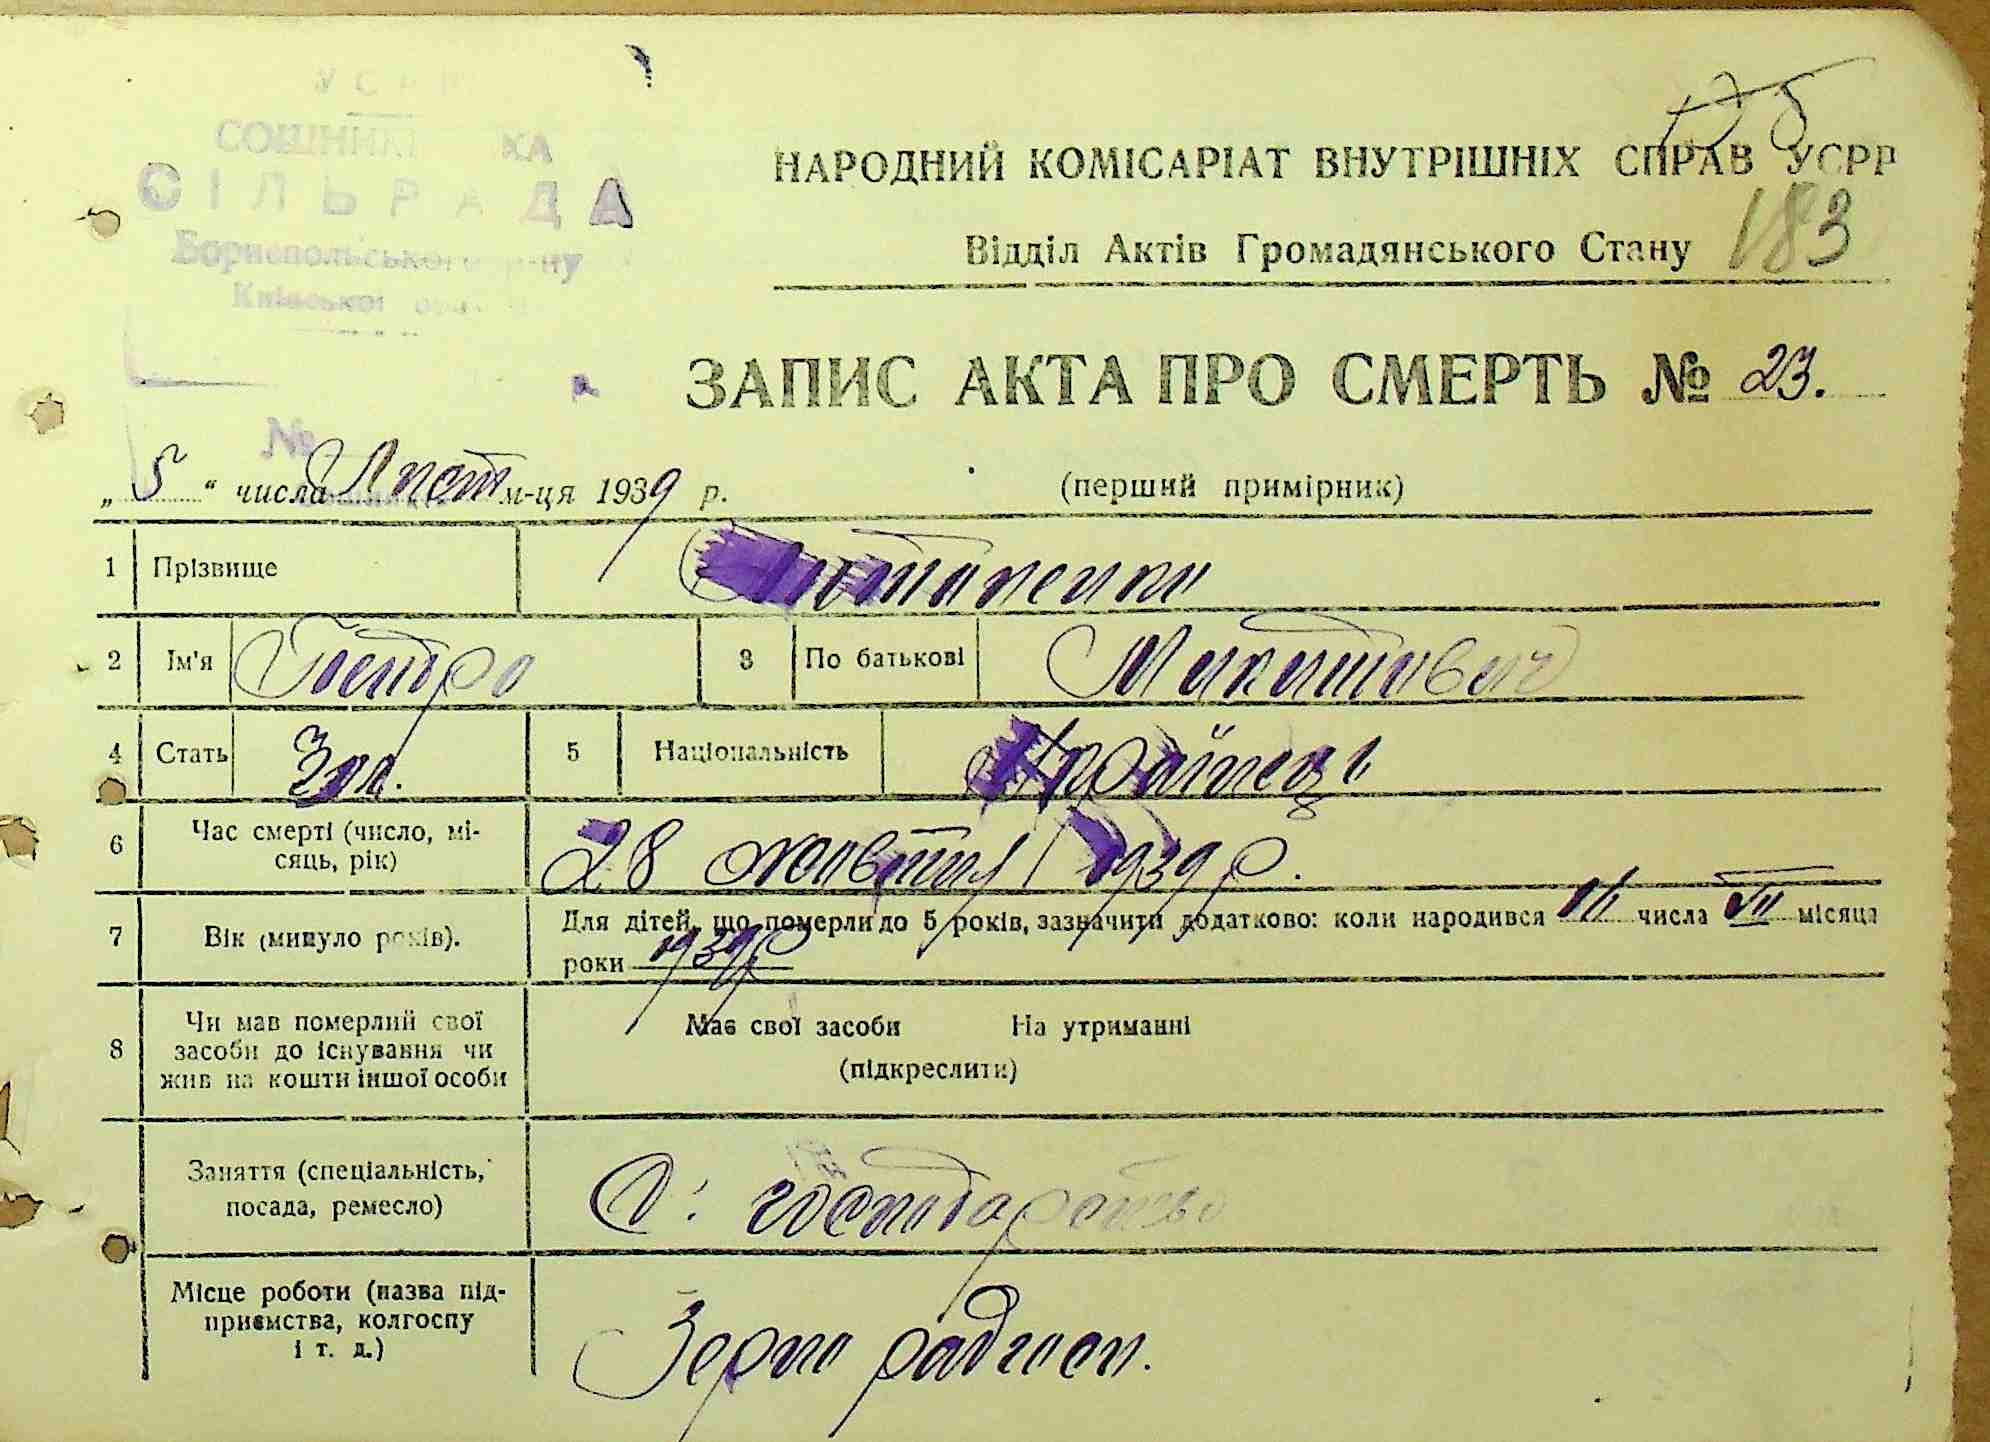 УСРР
СОШНИКІ КА
СІЛЬРАДА
Бориспольського р-ну
Київської
№
175
183
НАРОДНИЙ КОМІСАРІАТ ВНУТРІШНІХ СПРАВ УСРР
Відділ Актів Громадянського Стану
ЗАПИС АКТА ПРО СМЕРТЬ № 23.
„ 5 “ числа Лист м-ця 1939 р. (перший примірник)
1 Прізвище
2 Ім'я Петро 3 По батькові Микитович
4 Стать Чол. 5 Національність Українець
6 Час смерті (число, мі-
сяць, рік) 28 жовтня 1939 р.
7 Вік (минуло років). Для дітей, що померли до 5 років, зазначити додатково: коли народився числа VII місяця
роки 1939 р
8 Чи мав померлий свої
засоби до існування чи
жив на кошти іншої особи
Має свої засоби На утриманні
(підкреслити)
Заняття (спеціальність,
посада, ремесло) С: господарство
Місце роботи (назва під-
приємства, колгоспу
і т. д.) Зерно радгосп.